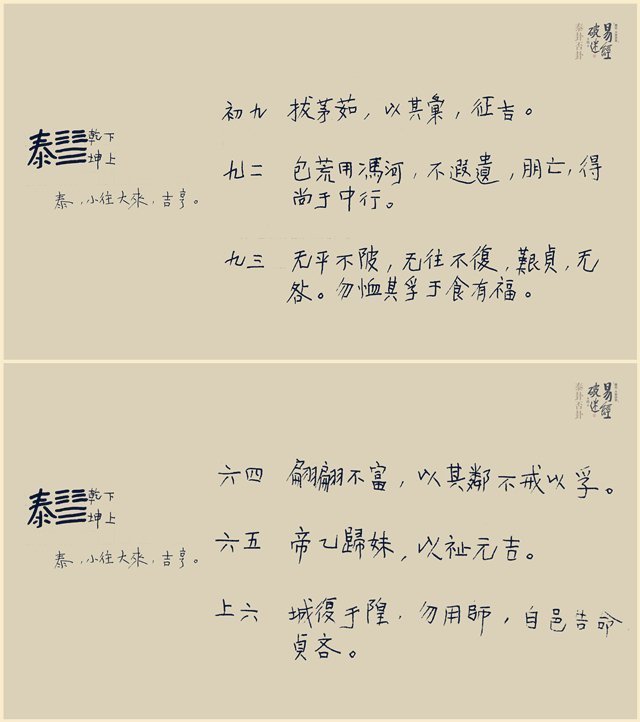 易經
破迷
泰卦否卦
泰
乾下
坤上
泰，小往大來，吉亨。
初九 拔茅茹，以其彙，征吉。
九二 包荒用馮河，不遐遺，朋亡，得
尚于中行。
九三 无平不陂，无往不復，艱貞，无
咎。勿恤其孚于食有福。
易經
破迷
泰卦否卦
泰
乾下
坤上
泰，小往大來，吉亨。
六四 翩翩不富，以其鄰不戒以孚。
六五 帝乙歸妹，以祉元吉。
上六 城復于隍，勿用師，自邑告命
貞吝。